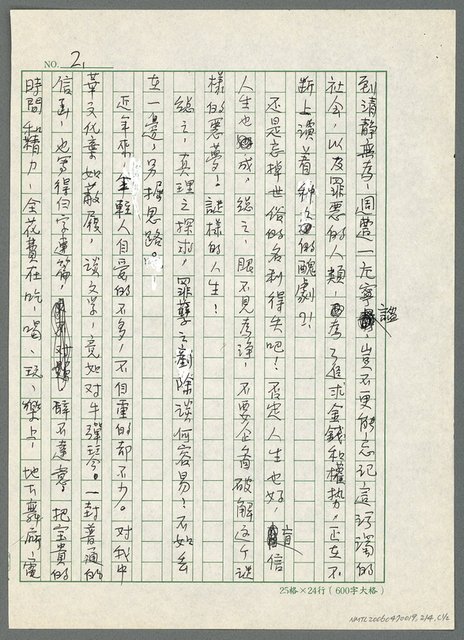 NO. 2.
到清靜無為,週遭一九寧謐,豈不更能忘記,這污濁的
社會,以及罪惡的人類,為了追求金錢和權勢,正在不
斷上演著種種的醜劇?!
還是忘掉世俗的名利得失吧!否定人生也好,盲信
人生也成,總之,眼不見為淨,不要企圖破解這個謎
樣的惡夢!謎樣的人生!
總之,真理之探求,罪孽之剷除談何容易!不如玄
在一念,另握思路。
近年來,年輕人自愛的不多,不自重的卻不少。對我中
華文化棄如敝屣,談文學,竟如對牛彈琴。一封普通的
信函,也寫得白字連篇,辭不達意。把寶貴的
時間和精力,全花費在吃、喝、玩、樂上,地下舞廳,電
25格×24行(600字大格)
NMTL20060470019, 2/4, C1/2